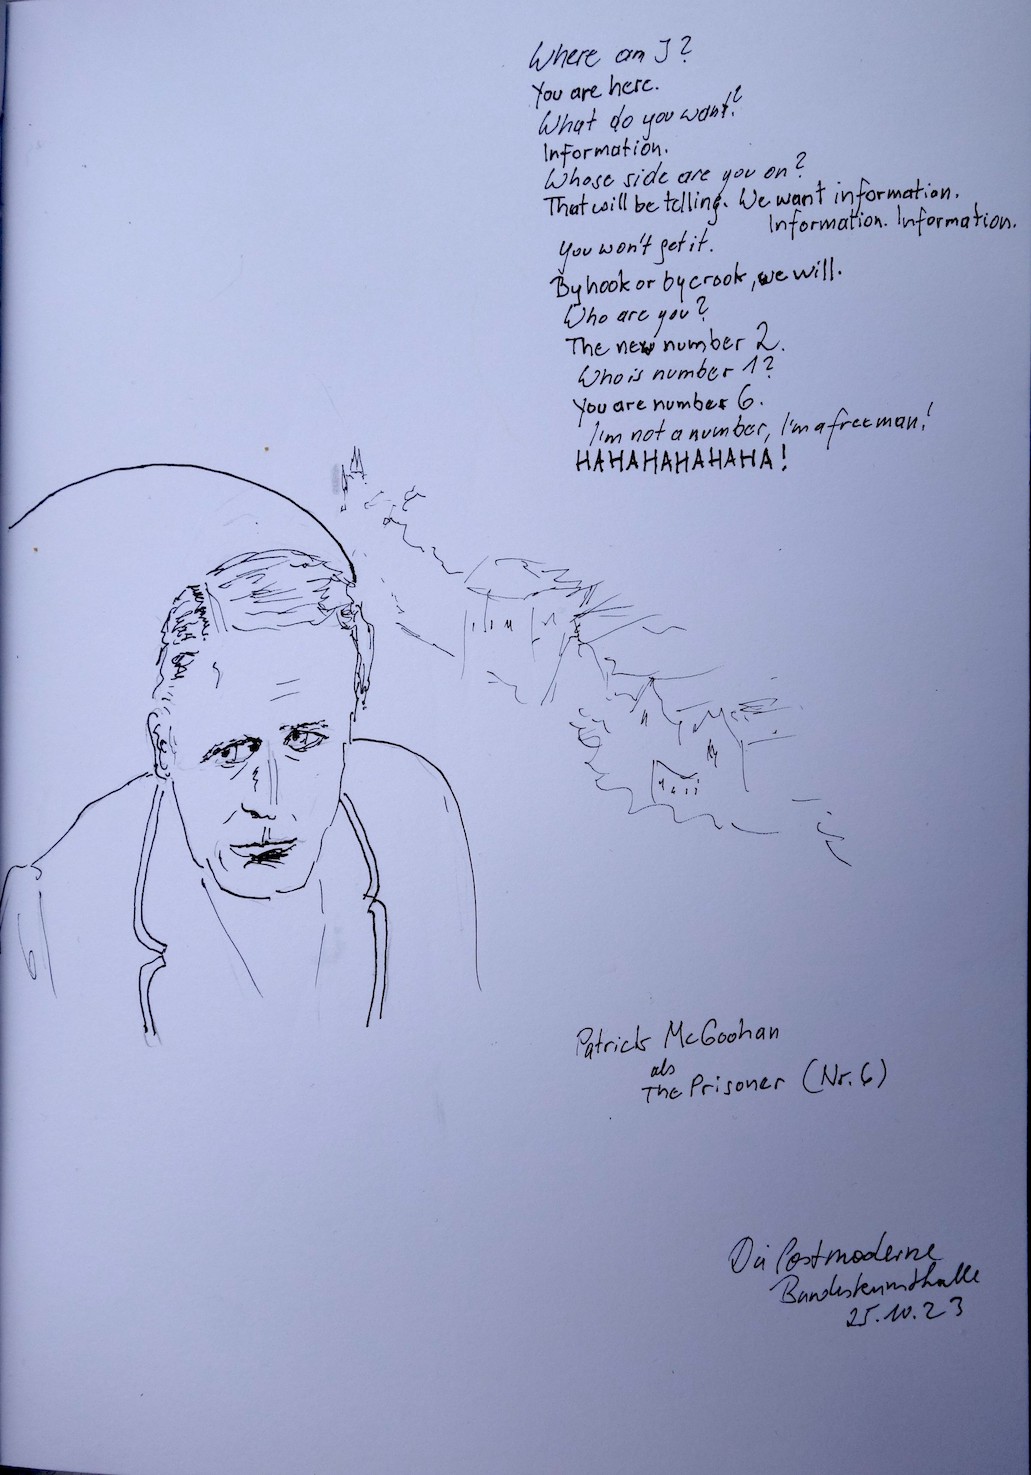 Where am I?
You are here.
What do you want?
Information.
Whose side are you on?
That will be telling. We want information.
Information. Information.
You won't get it.
By hook or by crook, we will.
Who are you?
The new number 2.
Who is number 1?
You are number 6.
I'm not a number, I'm a free man!
HAHAHAHAHAHA!
Patrick McGoohan
als
The Prisoner (Nr. 6)
Die Postmoderne
Bundeskunsthalle
25.10.23
6